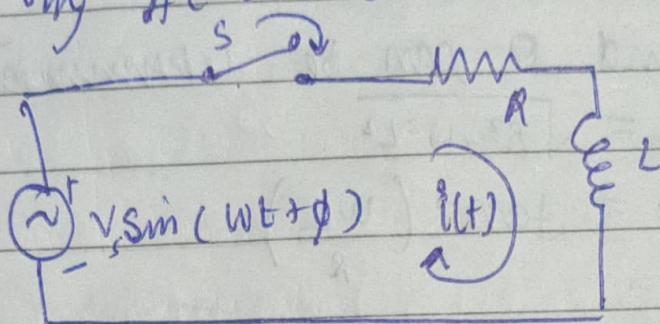 S
R
L
+
~ Vs sin (wt + φ) i(t)
-